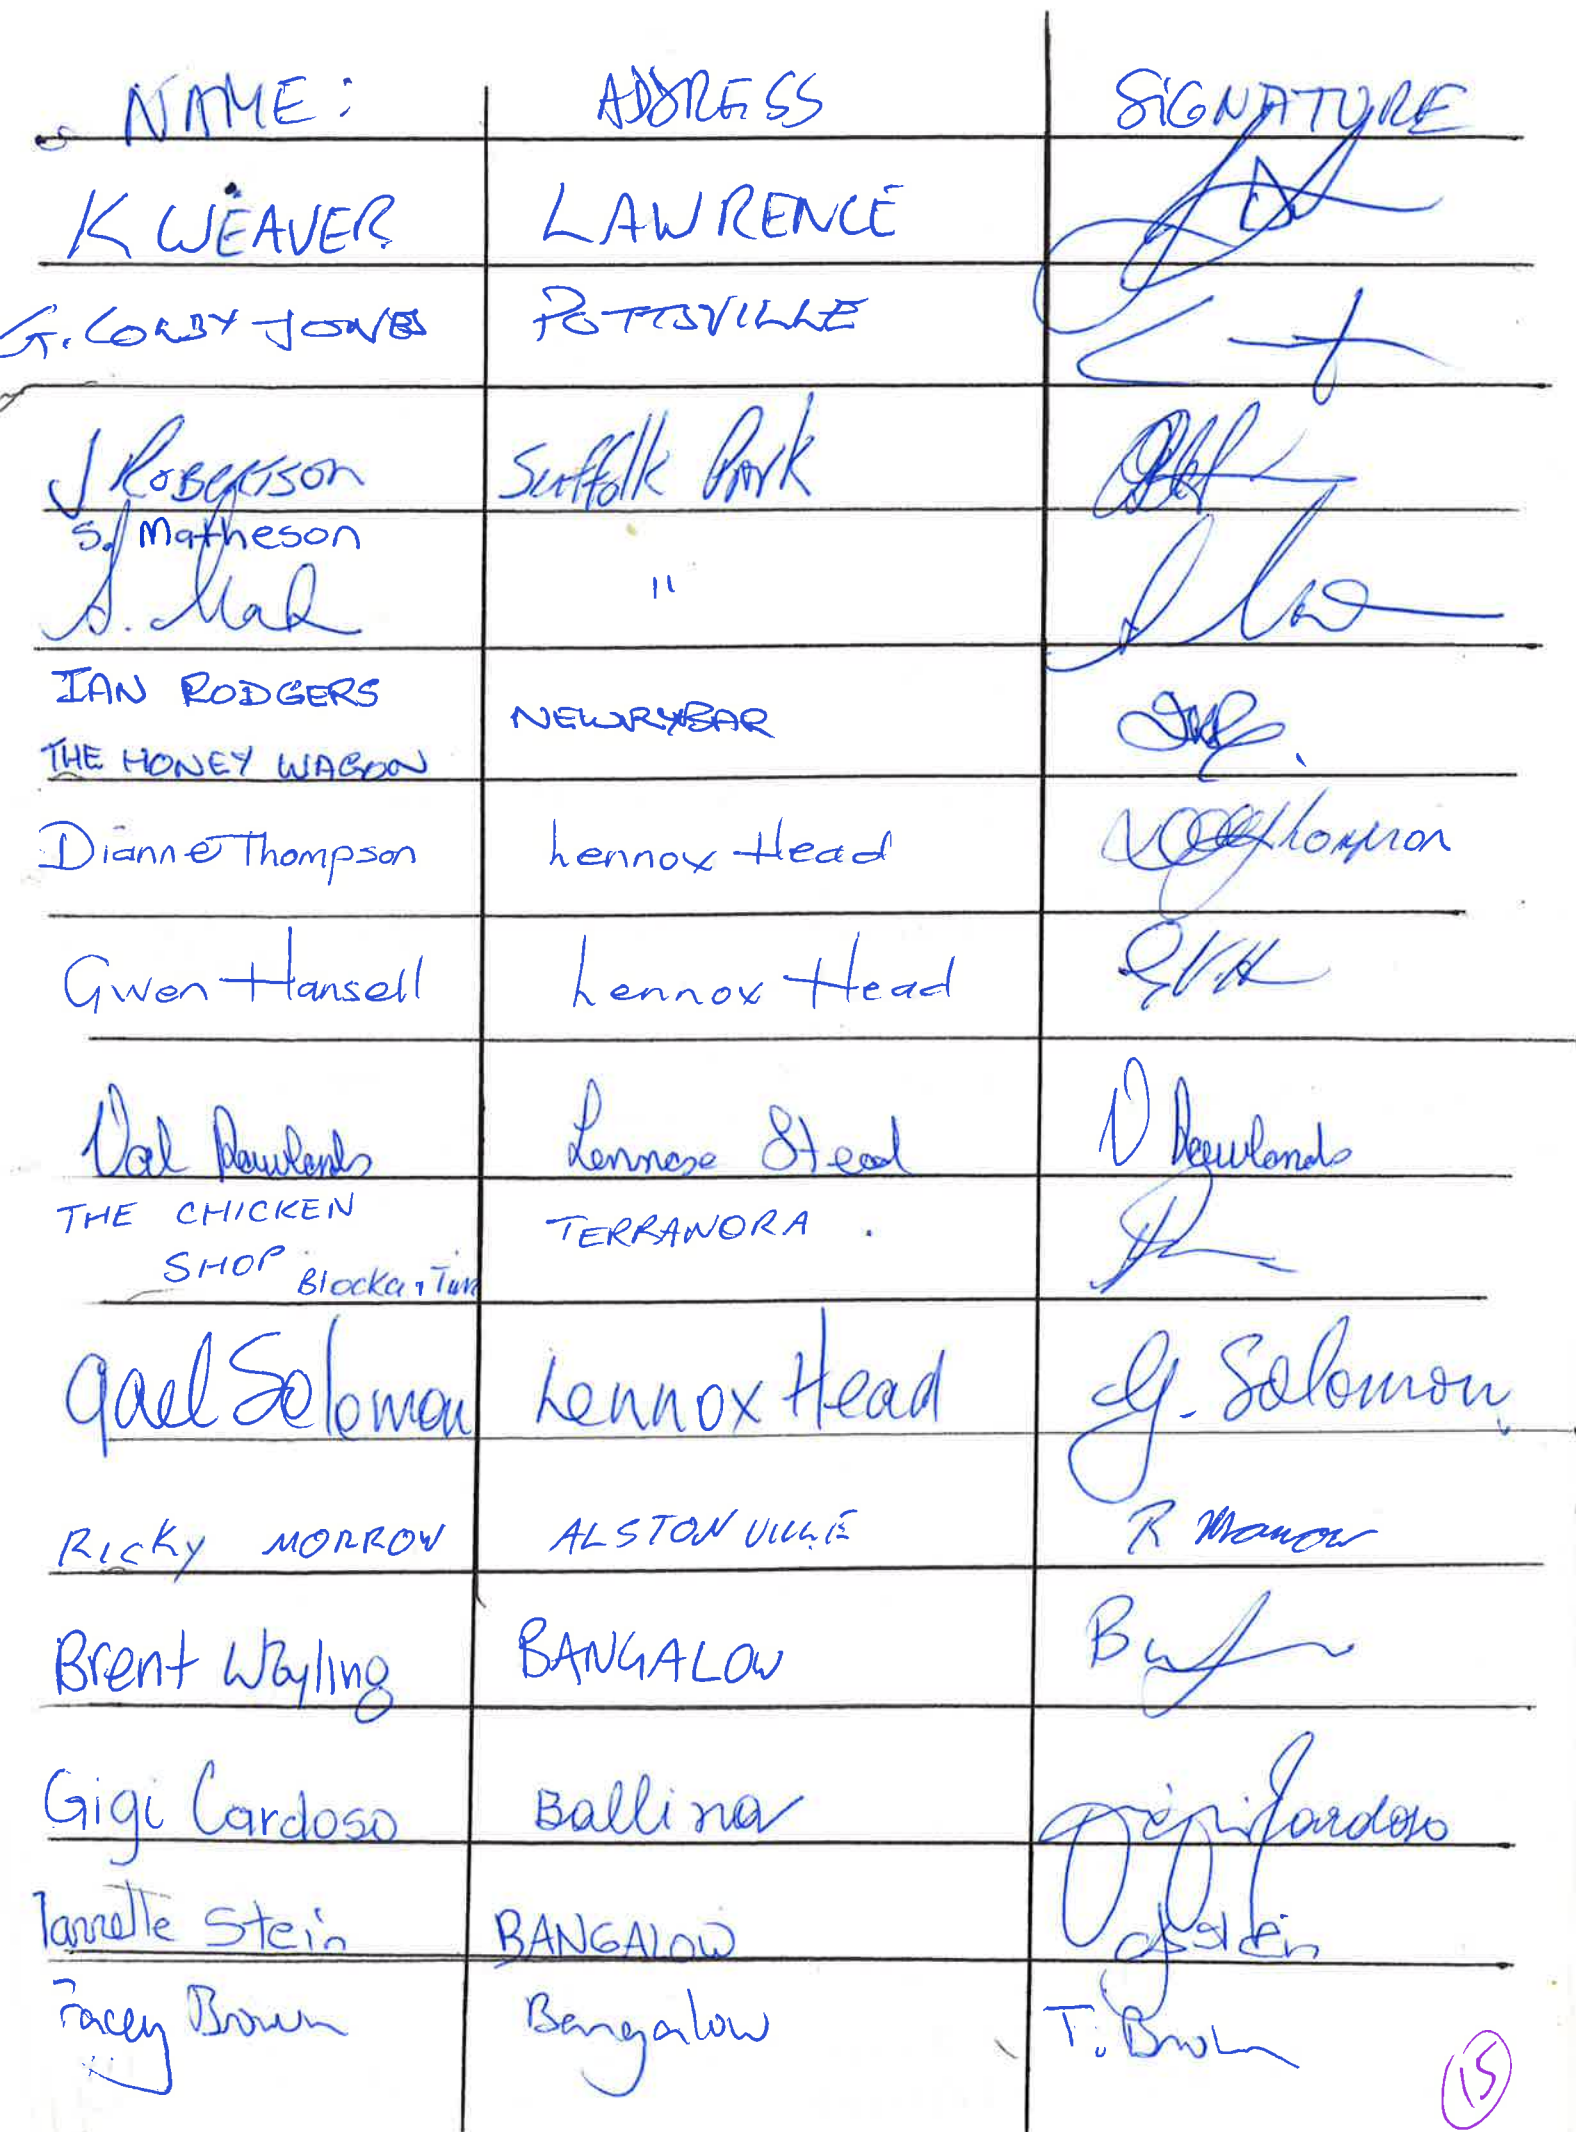 NAME: ADDRESS SIGNATURE
K WEAVER LAWRENCE
G. CORBY JONES POTTSVILLE
J ROBERTSON Suffolk Park
S. Matheson
"
IAN RODGERS
NEWRYBAR
THE HONEY WAGON
Dianne Thompson Lennox Head Thompson
Gwen Hansell Lennox Head G.V.H
Val Rowlands Lennox Head V Rowlands
THE CHICKEN TERRANORA
SHOP
Gael Solomon Lennox Head G. Solomon
RICKY MORROW ALSTONVILLE R Morrow
Brent Wayling BANGALOW
Gigi Cardoso Ballina Gigi Cardoso
Stein BANGALOW Stein
Tracey Brown Bangalow T. Brown
15